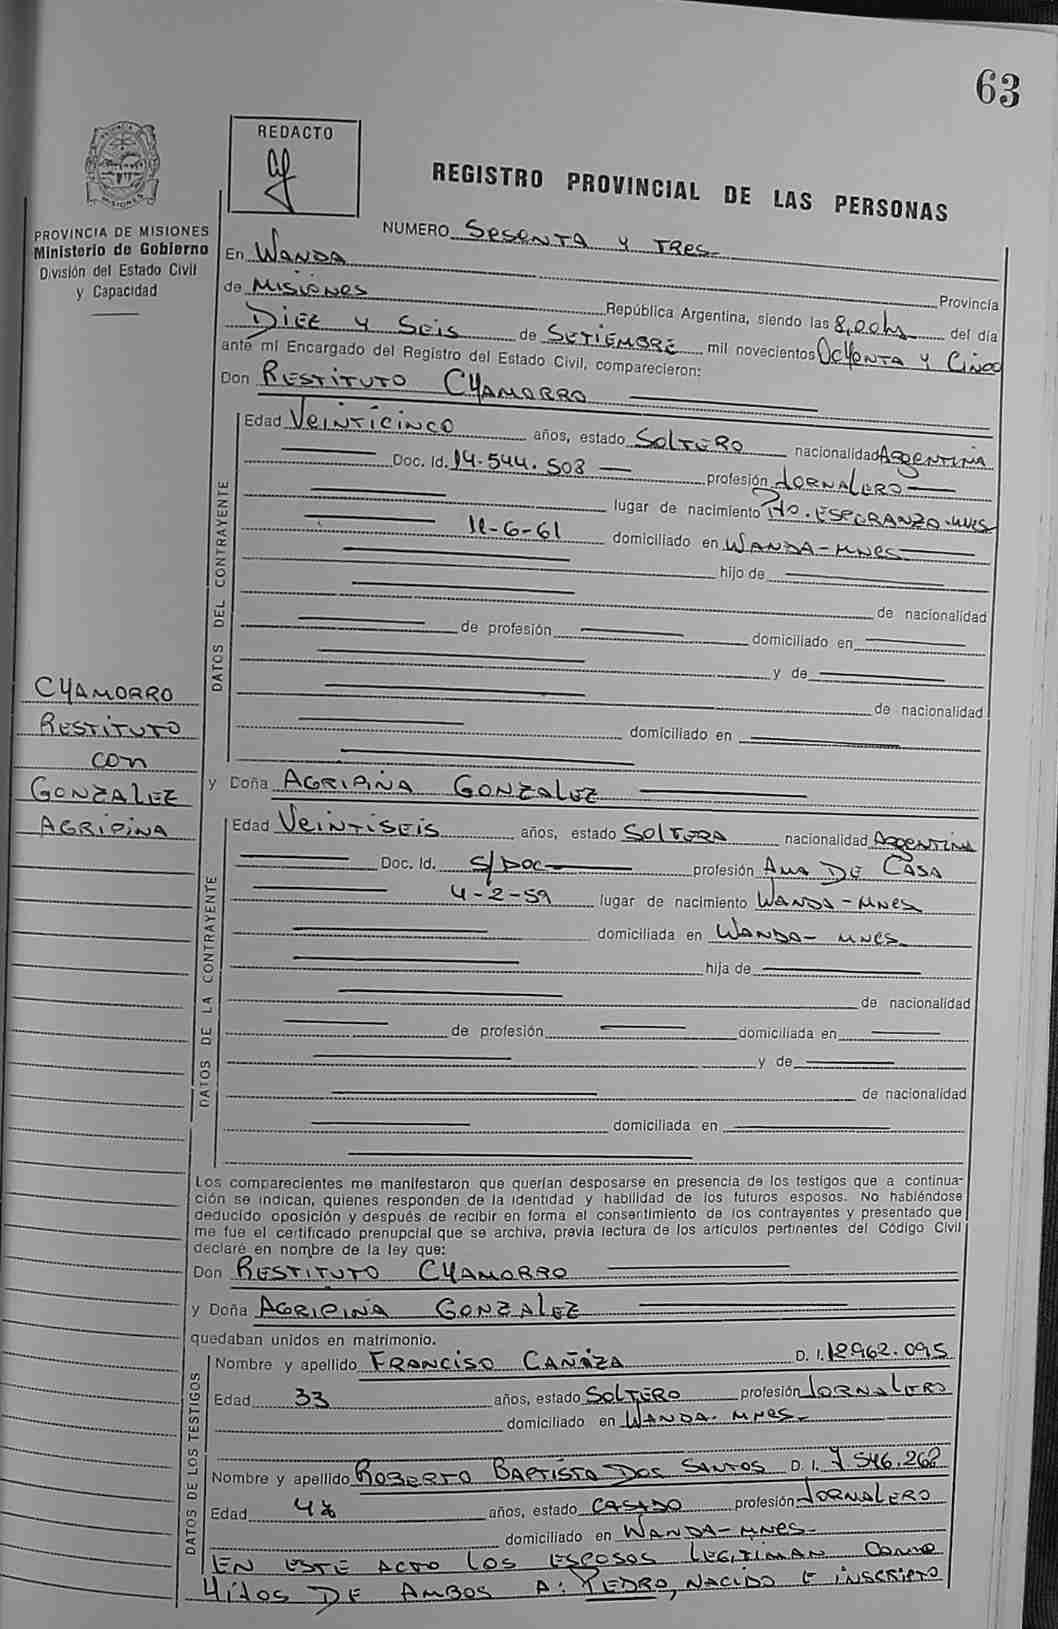 63
REDACTO
REGISTRO PROVINCIAL DE LAS PERSONAS
PROVINCIA DE MISIONES
Ministerio de Gobierno
División del Estado Civil
y Capacidad
NUMERO SESENTA Y TRES
En WANDA
Provincia
de MISIONES República Argentina, siendo las 8,00hs del día
DIEZ Y SEIS de SETIEMBRE mil novecientos OCHENTA Y CINCO
ante mí Encargado del Registro del Estado Civil, comparecieron:
Don RESTITUTO CHAMORRO
DATOS DEL CONTRAYENTE
Edad VEINTICINCO años, estado SOLTERO nacionalidad ARGENTINA
Doc. Id. 14.544.503 profesión JORNALERO
lugar de nacimiento Pto. ESPERANZA-MNES
11-6-61 domiciliado en WANDA-MNES
hijo de
de nacionalidad
de profesión domiciliado en
y de
de nacionalidad
domiciliado en
CHAMORRO
RESTITUTO
CON
GONZALEZ
AGRIPINA
y Doña AGRIPINA GONZALEZ
DATOS DE LA CONTRAYENTE
Edad VEINTISEIS años, estado SOLTERA nacionalidad ARGENTINA
Doc. Id. S/DOC profesión AMA DE CASA
4-2-59 lugar de nacimiento WANDA-MNES
domiciliada en WANDA-MNES
hija de
de nacionalidad
de profesión domiciliada en
y de
de nacionalidad
domiciliada en
Los comparecientes me manifestaron que querían desposarse en presencia de los testigos que a continua-
ción se indican, quienes responden de la identidad y habilidad de los futuros esposos. No habiéndose
deducido oposición y después de recibir en forma el consentimiento de los contrayentes y presentado que
me fue el certificado prenupcial que se archiva, previa lectura de los artículos pertinentes del Código Civil
declaré en nombre de la ley que:
Don RESTITUTO CHAMORRO
y Doña AGRIPINA GONZALEZ
quedaban unidos en matrimonio.
DATOS DE LOS TESTIGOS
Nombre y apellido FRANCISO CAÑIZA D. I. 12962.095
Edad 33 años, estado SOLTERO profesión JORNALERO
domiciliado en WANDA-MNES
Nombre y apellido ROBERTO BAPTISTA DOS SANTOS D. I. 7546.262
Edad años, estado CASADO profesión JORNALERO
domiciliado en WANDA-MNES
EN ESTE ACTO LOS ESPOSOS LEGITIMAN COMO
HIJOS DE AMBOS A: PEDRO, NACIDO E INSCRIPTO